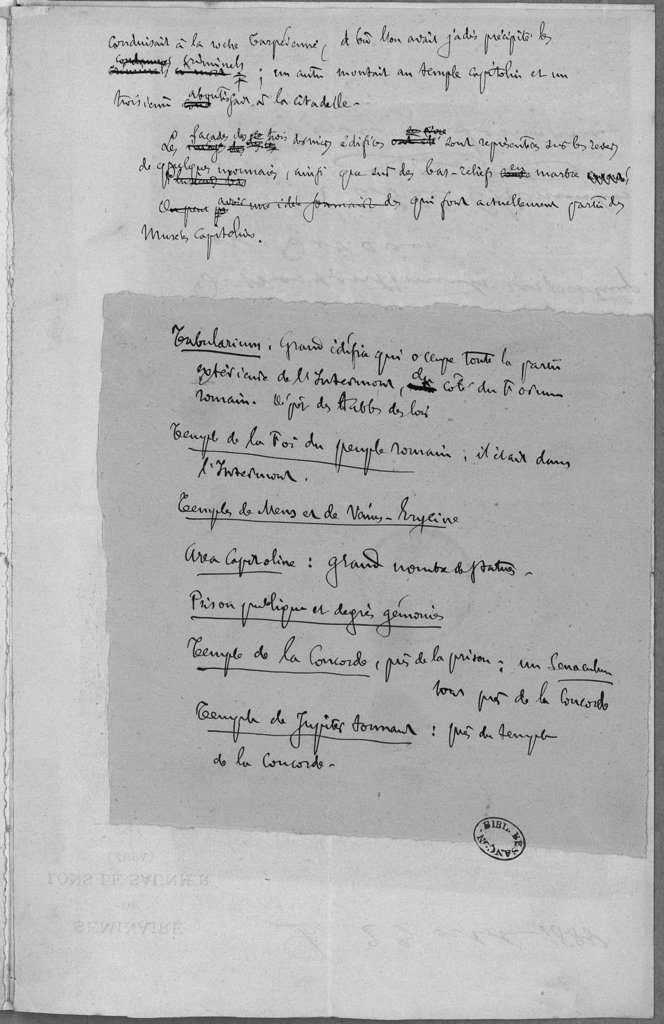 conduisait à la roche Tarpéienne, d'où l'on avait jadis précipité les
criminels ; un autre montait au temple Capitolin et un
troisième aboutissait à la citadelle.
Les façades des trois derniers édifices sont représentées sur les revers
de quelques monnaies, ainsi que sur des bas-reliefs marbre
qui font actuellement partie des
Musées Capitolins.
Tabularium : Grand édifice qui occupe toute la partie
extérieure de l'Intermont, du coté du Forum
romain. Dépôt des tables des lois
Temple de la Foi du peuple romain ; il était dans
l'Intermont.
Temples de Mens et de Vénus-Erycine
Area Capitoline : grand nombre de statues.
Prison publique et degrés gémonies
Temple de la Concorde, près de la prison ; un Senaculum
tout près de la Concorde
Temple de Jupiter tonnant : près du temple
de la Concorde.
BIBL. BESANÇON
(JURA)
LONS LE SAUNIER
DE
SÉMINAIRE